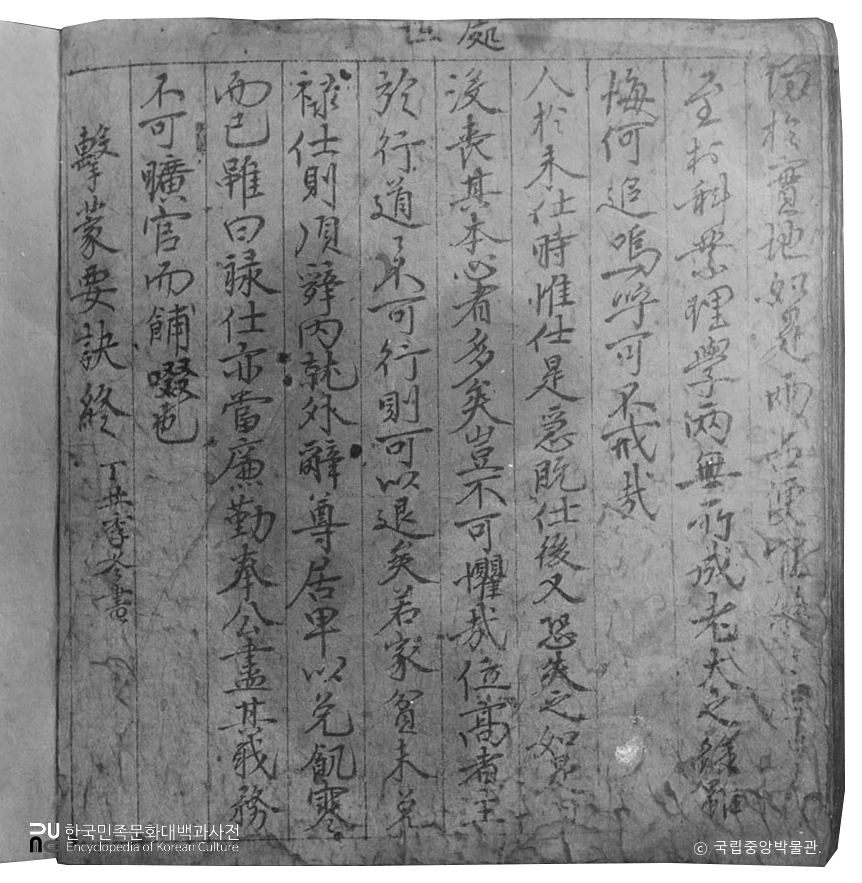 處
於實地如是兩占便宜
至於科業理學兩無所成老大之後雖
悔何追嗚呼可不戒哉
人於未仕時惟仕是急旣仕後又恐失之如是
沒喪其本心者多矣豈不可懼哉位高者主
於行道々不可行則可以退矣若家貧未免
祿仕則須辭內就外辭尊居卑以免飢寒
而已雖曰祿仕亦當廉勤奉公盡其職務
不可曠官而餔啜也
擊蒙要訣終 丁丑季冬書
한국민족문화대백과사전
Encyclopedia of Korean Culture
© 국립중앙박물관.